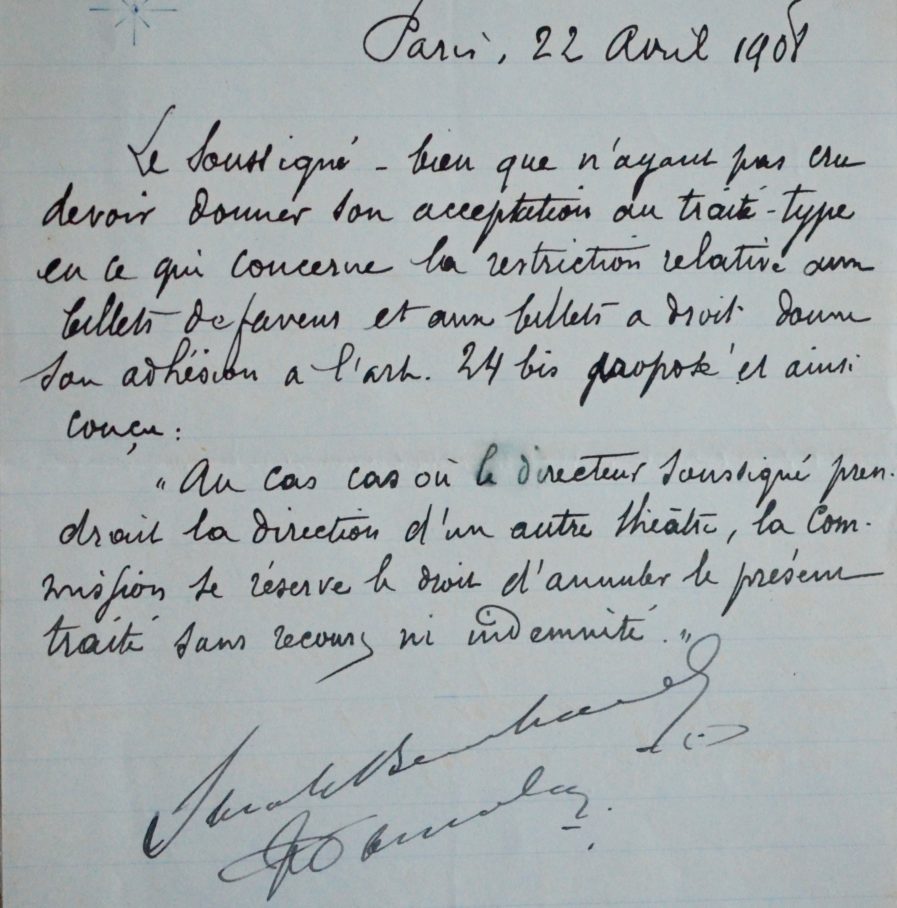 Paris, 22 Avril 1908
Le Soussigné - bien que n'ayant pas cru
devoir donner son acceptation au traité-type
en ce qui concerne la restriction relative aux
billets de faveur et aux billets a droit donne
son adhésion a l'art. 24 bis proposé et ainsi
conçu :
"Au cas cas où le directeur soussigné pren-
drait la direction d'un autre théâtre, la Com-
mission se réserve le droit d'annuler le présent
traité sans recours ni indemnité."
Sarah Bernhardt